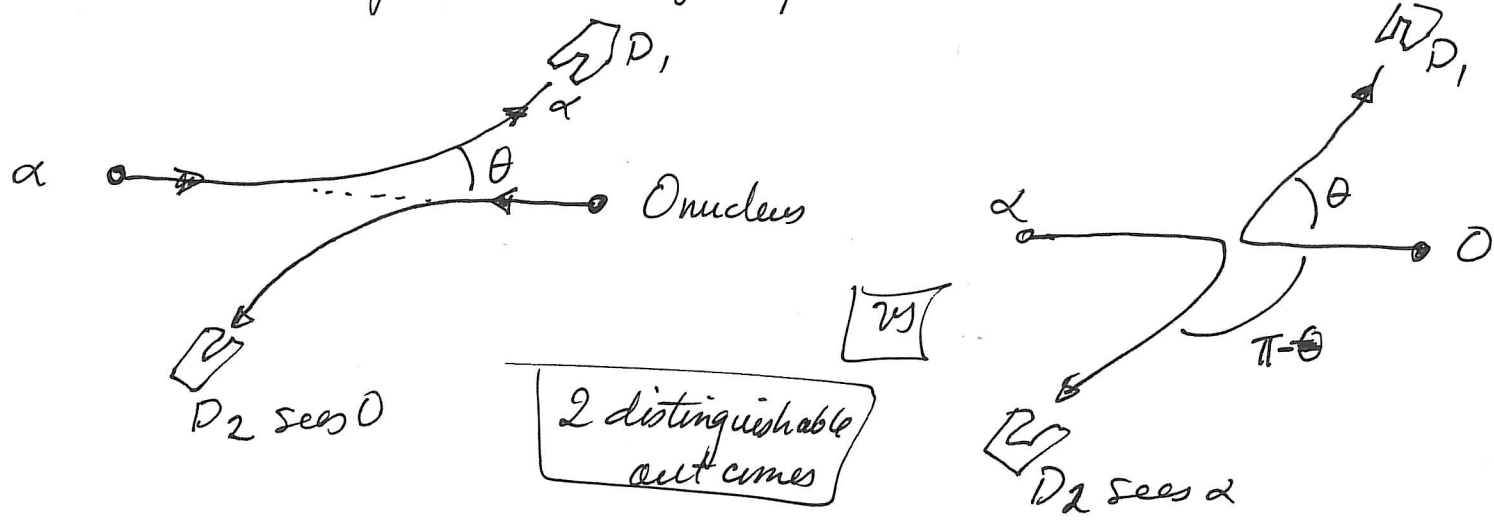 D1
α
θ
α
O nucleus
D2 sees O
vs
2 distinguishable
outcomes
D1
θ
α
O
π-θ
D2 sees α